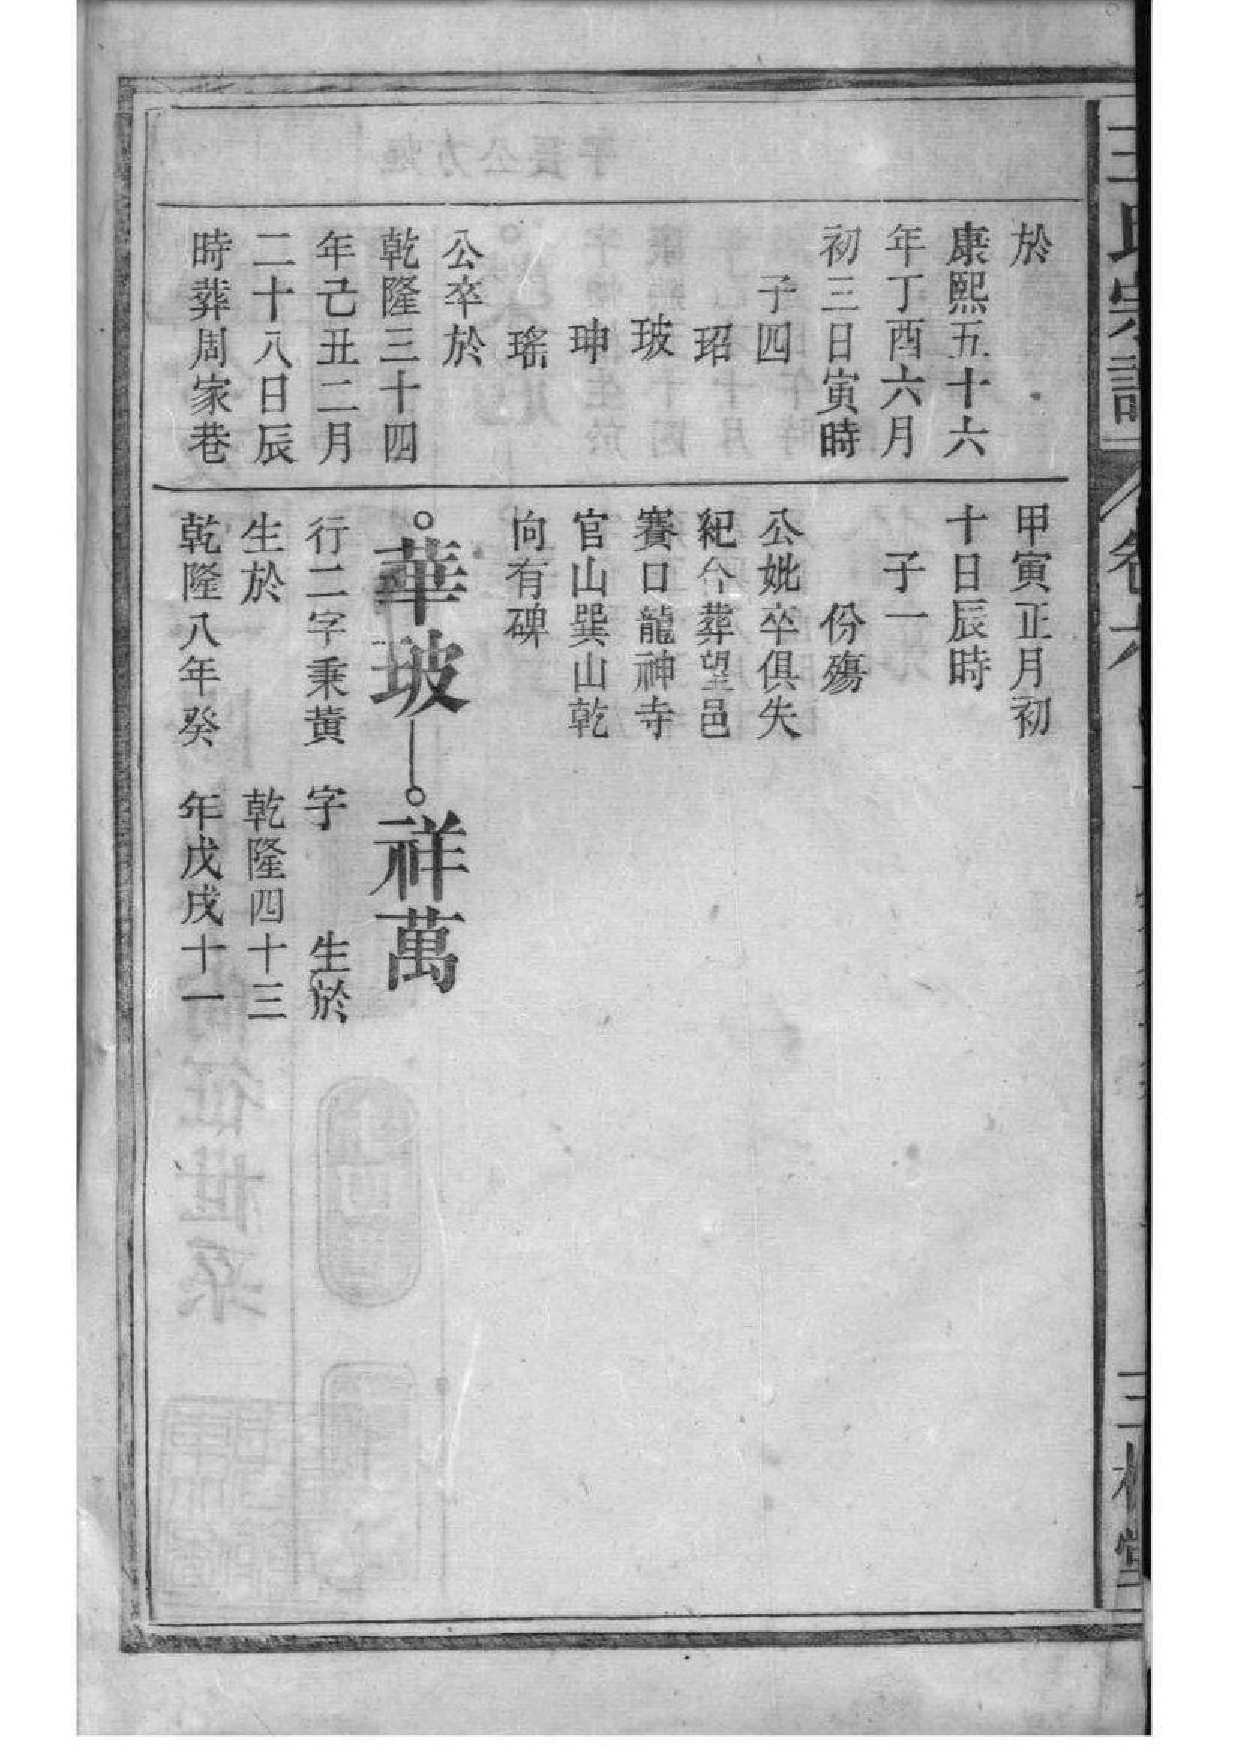 王氏宗譜
卷六
三槐堂
於
康熙五十六
年丁酉六月
初三日寅時
子四
玿
玻
珅
瑤
公卒於
乾隆三十四
年己丑二月
二十八日辰
時葬周家巷
甲寅正月初
十日辰時
子一
份殤
公妣卒俱失
紀今葬望邑
賽口龍神寺
官山巽山乾
向有碑
華玻
行二字秉黄
生於
乾隆八年癸
祥萬
字 生於
乾隆四十三
年戊戌十一